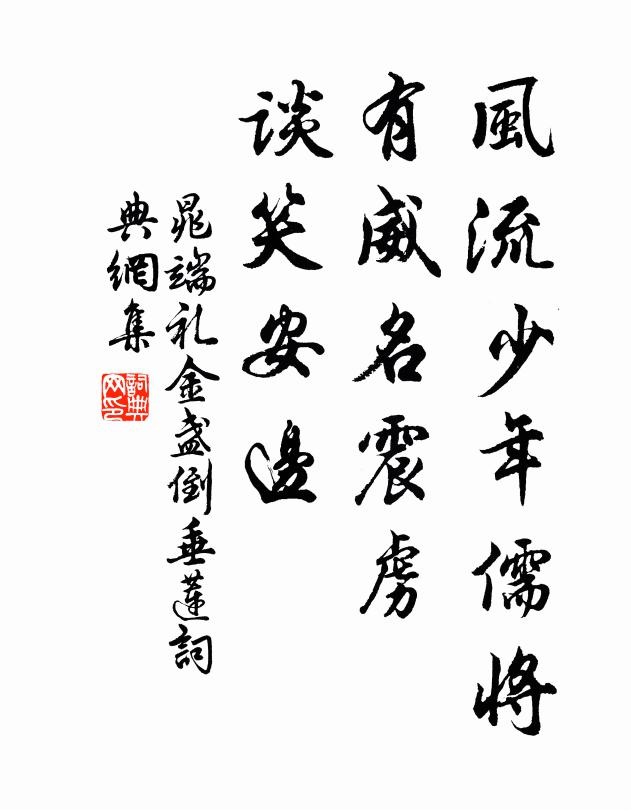 風流少年儒將
有威名震虜
談笑安邊
晁端礼金盞倒垂蓮詞
典網集
詞典网印